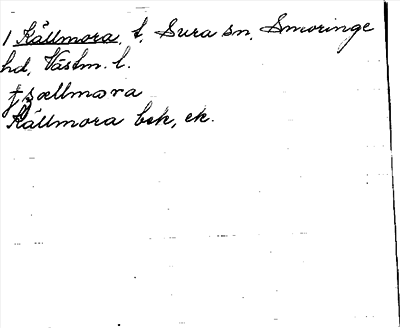 1 Källmora, t, Sura sn, Snoringe
hd, Västm. l.
tjsællmora
Källmora bek, ek.